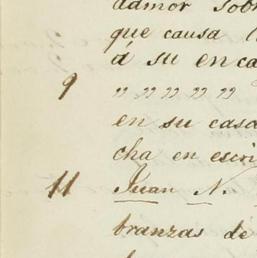 admor sob
que causa
á su enca
9 " " " " "
en su casa
cha en escri
11 Juan N.
branzas de